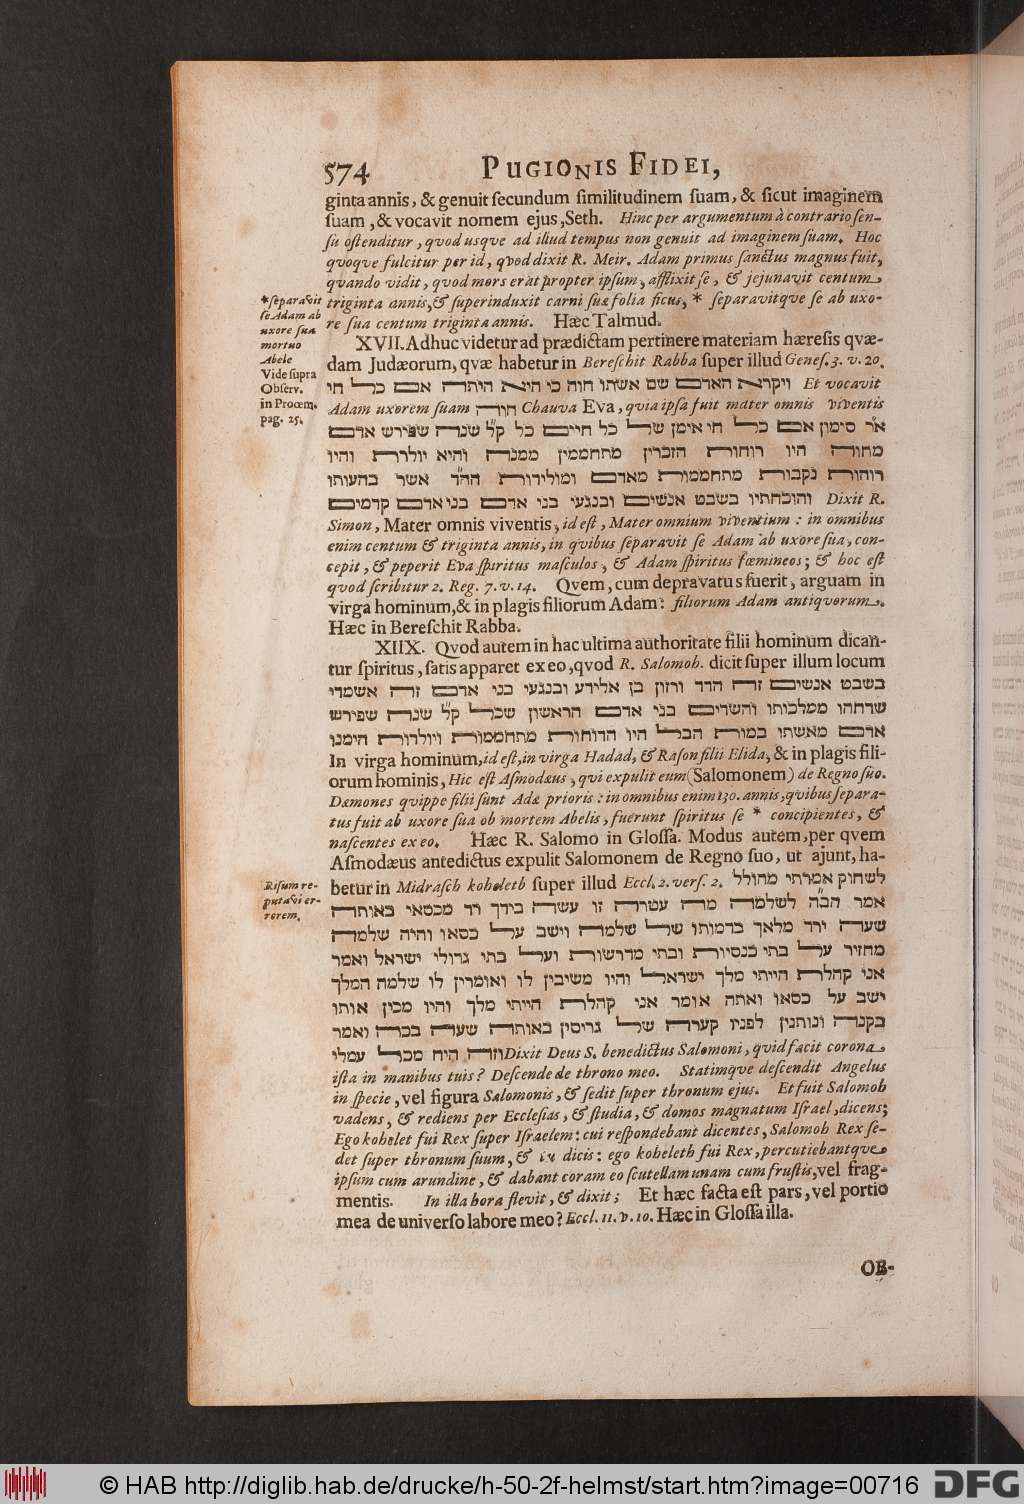 574 PUGIONIS FIDEI,
ginta annis, & genuit secundum similitudinem suam, & sicut imaginem
suam, & vocavit nomem ejus, Seth. Hinc per argumentum à contrario sen-
su ostenditur, qvod usque ad illud tempus non genuit ad imaginem suam. Hoc
qvoqve fulcitur per id, qvod dixit R. Meir. Adam primus sanctus magnus fuit,
qvando vidit, qvod mors erat propter ipsum, afflixit se, & jejunavit centum
triginta annis, & superinduxit carni suæ folia ficus, * separavitqve se ab uxo-
re sua centum triginta annis. Hæc Talmud.
*separavit
se Adam ab
uxore sua
mortuo
Abele
Vide supra
Observ.
in Proœm.
pag. 25.
XVII. Adhuc videtur ad prædictam pertinere materiam hæresis qvæ-
dam Judæorum, qvæ habetur in Bereschit Rabba super illud Genes. 3. v. 20.
ויקרא האדם שם אשתו חוה כי היא היתה אם כל חי Et vocavit
Adam uxorem suam חוה Chauva Eva, qvia ipsa fuit mater omnis viventis
א״ר סימון אם כל חי אימן של כל חיים כל ק״ל שנה שפירש אדם
מחוה היו רוחות הזכרין מתחממין ממנה והיא יולדת והיו
רוהות נקבות מתחממות מאדם ומולידות הה״ד אשר בהעותו
והוכחתיו בשבט אנשים ובנגעי בני אדם בני אדם קדמים Dixit R.
Simon, Mater omnis viventis, id est, Mater omnium viventium : in omnibus
enim centum & triginta annis, in qvibus separavit se Adam ab uxore sua, con-
cepit, & peperit Eva spiritus masculos, & Adam spiritus fœmineos; & hoc est
qvod scribitur 2. Reg. 7. v. 14. Qvem, cum depravatus fuerit, arguam in
virga hominum, & in plagis filiorum Adam: filiorum Adam antiqvorum.
Hæc in Bereschit Rabba.
XIIX. Qvod autem in hac ultima authoritate filii hominum dican-
tur spiritus, satis apparet ex eo, qvod R. Salomoh. dicit super illum locum
בשבט אנשים זה הדד ורזון בן אלידע ובנגעי בני אדם זה אשמדי
שדחהו ממלכותו והשדים בני אדם הראשון שכל ק״ל שנה שפירש
אדם מאשתו במות הבל היו הרוחות מתחממות ויולדות הימנו
In virga hominum, id est, in virga Hadad, & Rason filii Elida, & in plagis fili-
orum hominis, Hic est Asmodæus, qvi expulit eum (Salomonem) de Regno suo.
Dæmones qvippe filii sunt Adæ prioris : in omnibus enim 130. annis, qvibus separa-
tus fuit ab uxore sua ob mortem Abelis, fuerunt spiritus se * concipientes, &
nascentes ex eo. Hæc R. Salomo in Glossa. Modus autem, per qvem
Asmodæus antedictus expulit Salomonem de Regno suo, ut ajunt, ha-
betur in Midrasch koheleth super illud Eccl. 2. vers. 2. לשחוק אמרתי מהולל
Risum re-
putavi er-
rorem.
אמר הב״ה לשלמה מה עטרה זו עשה בידך רד מכסאי באותה
שעה ירד מלאך בדמותו של שלמה וישב על כסאו והיה שלמה
מחזיר על בתי כנסיות ובתי מדרשות ועל בתי גדולי ישראל ואמר
אני קהלת הייתי מלך ישראל והיו משיבין לו ואומרין לו שלמה המלך
ישב על כסאו ואתה אומר אני קהלת הייתי מלך והיו מכין אותו
בקנה ונותנין לפניו קערה של גריסין באותה שעה בכה ואמר
וזה היה מכל עמלי Dixit Deus S. benedictus Salomoni, qvid facit corona
ista in manibus tuis? Descende de throno meo. Statimqve descendit Angelus
in specie, vel figura Salomonis, & sedit super thronum ejus. Et fuit Salomoh
vadens, & rediens per Ecclesias, & studia, & domos magnatum Israel, dicens;
Ego kohelet fui Rex super Israelem: cui respondebant dicentes, Salomoh Rex se-
det super thronum suum, & tu dicis: ego koheleth fui Rex, percutiebantqve
ipsum cum arundine, & dabant coram eo scutellam unam cum frustis, vel frag-
mentis. In illa hora flevit, & dixit; Et hæc facta est pars, vel portio
mea de universo labore meo? Eccl. 11. v. 10. Hæc in Glossa illa.
OB-
© HAB http://diglib.hab.de/drucke/h-50-2f-helmst/start.htm?image=00716 DFG